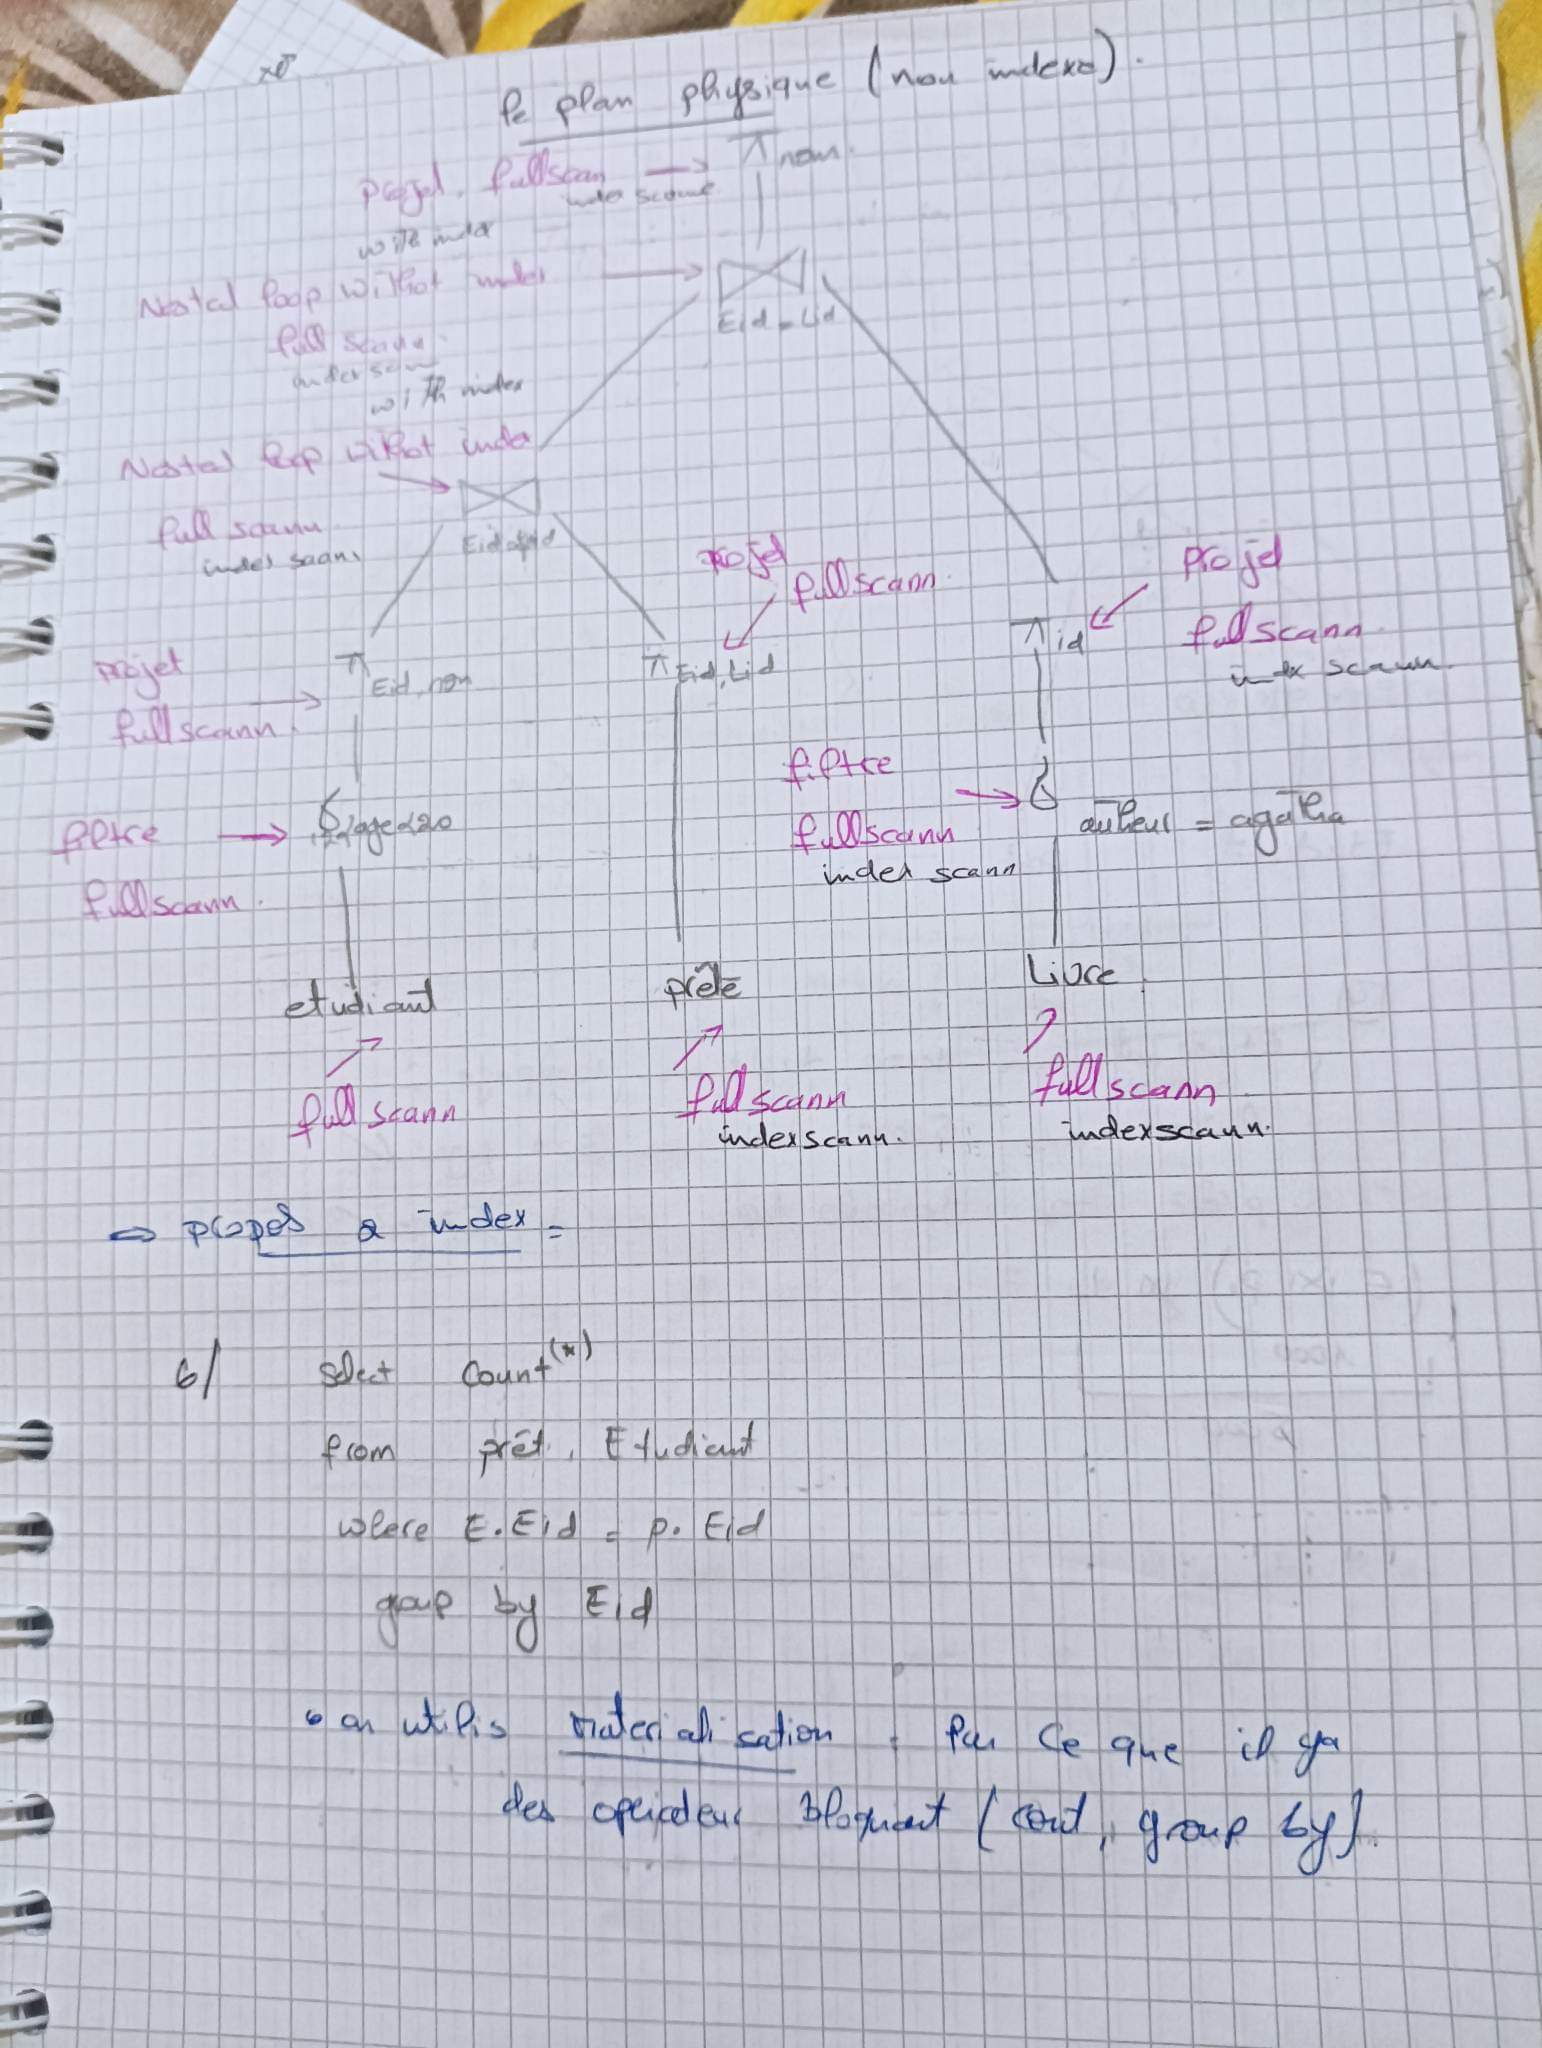 le plan physique (non indexé).
projet. fullscan → π nom.
index scanne
with index
Nested loop without index →
Eid = Lid
full scann
index scan
with index
Nested loop without index
full scann
index scann
projet
fullscann
Eid, nom
Eid, Lid
projet
fullscann.
id
projet
fullscann
index scann.
filtre
fullscann.
age<20
filtre
fullscann
index scann
auteur = agatha
etudiant
prête
Livre
full scann
full scann
indexscann.
full scann
indexscann.
⇒ propos 2 index =
6/ select count(*)
from prêt, Etudiant
where E.Eid = p.Eid
group by Eid
• on utilis materialisation, par ce que il ya
des operateur bloquant (cont, group by).